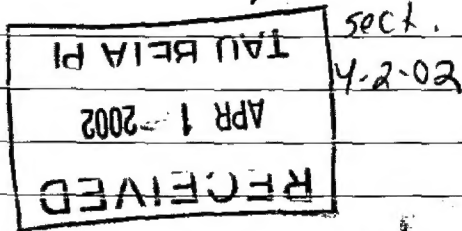 sect.
4-2-02
RECEIVED
APR 1 2002
TAU BETA PI